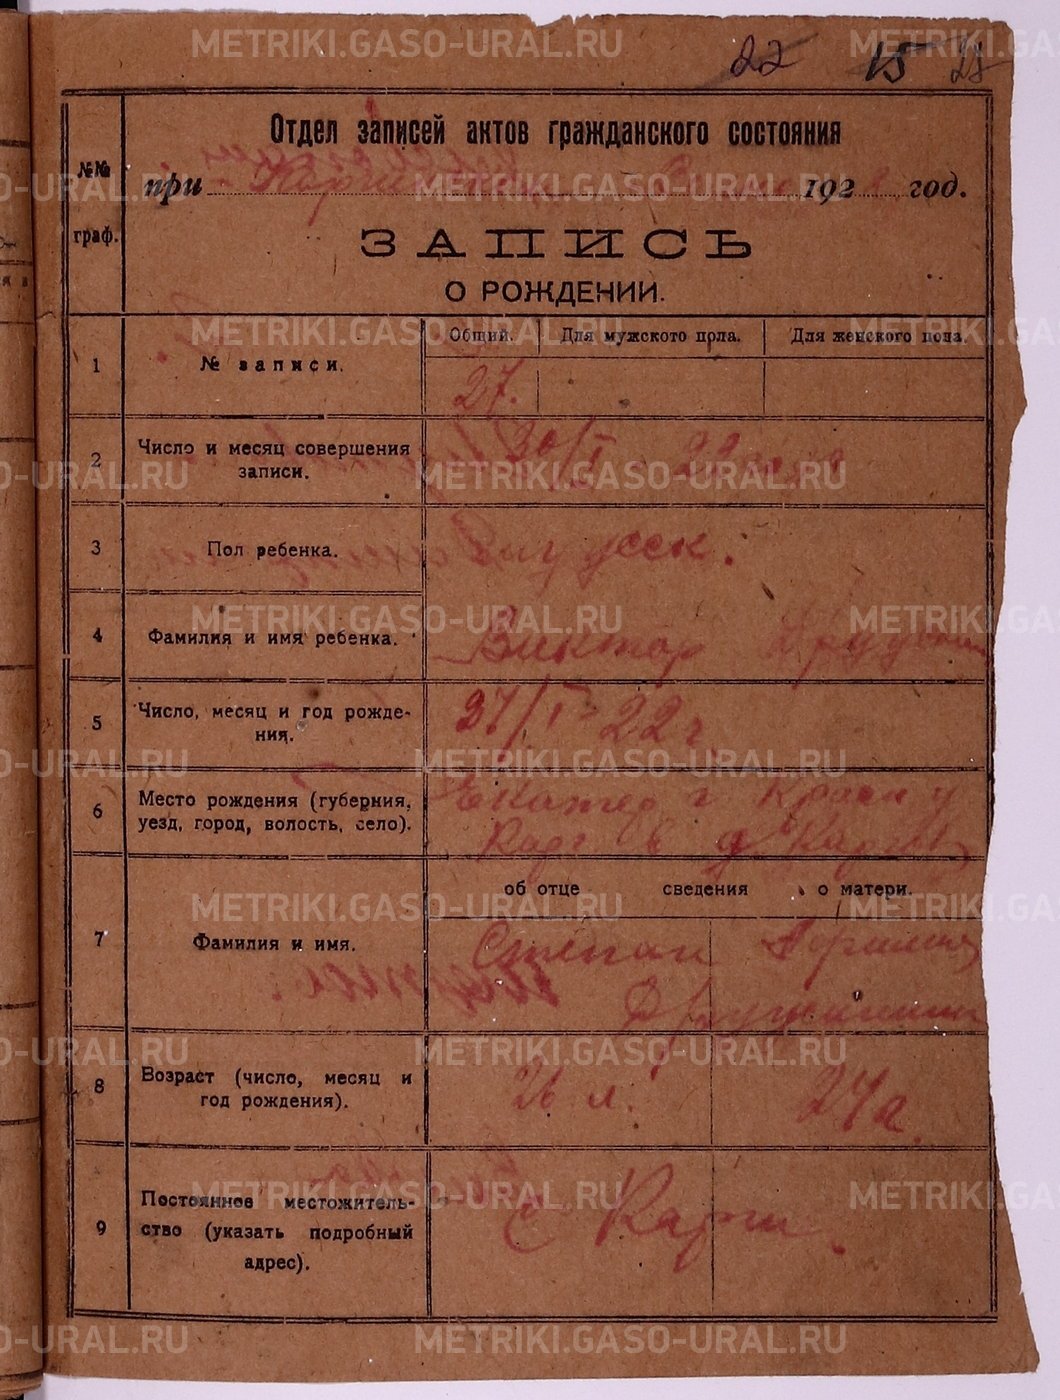 22 15 21
Отдел записей актов гражданского состояния
№№
при 192 год.
граф.
ЗАПИСЬ
О РОЖДЕНИИ.
Общий. Для мужского пола. Для женского пола.
1 № записи.
27.
2 Число и месяц совершения
записи.
30/I 22 года
3 Пол ребенка.
мужск.
4 Фамилия и имя ребенка.
Виктор
5 Число, месяц и год рожде-
ния.
27/I 22 г.
6 Место рождения (губерния,
уезд, город, волость, село).
Екатер г Красн у
Карг в
об отце сведения о матери.
7 Фамилия и имя.
Степан
8 Возраст (число, месяц и
год рождения).
26 л. 24 а.
9 Постоянное местожитель-
ство (указать подробный
адрес).
с Карги
METRIKI.GASO-URAL.RU